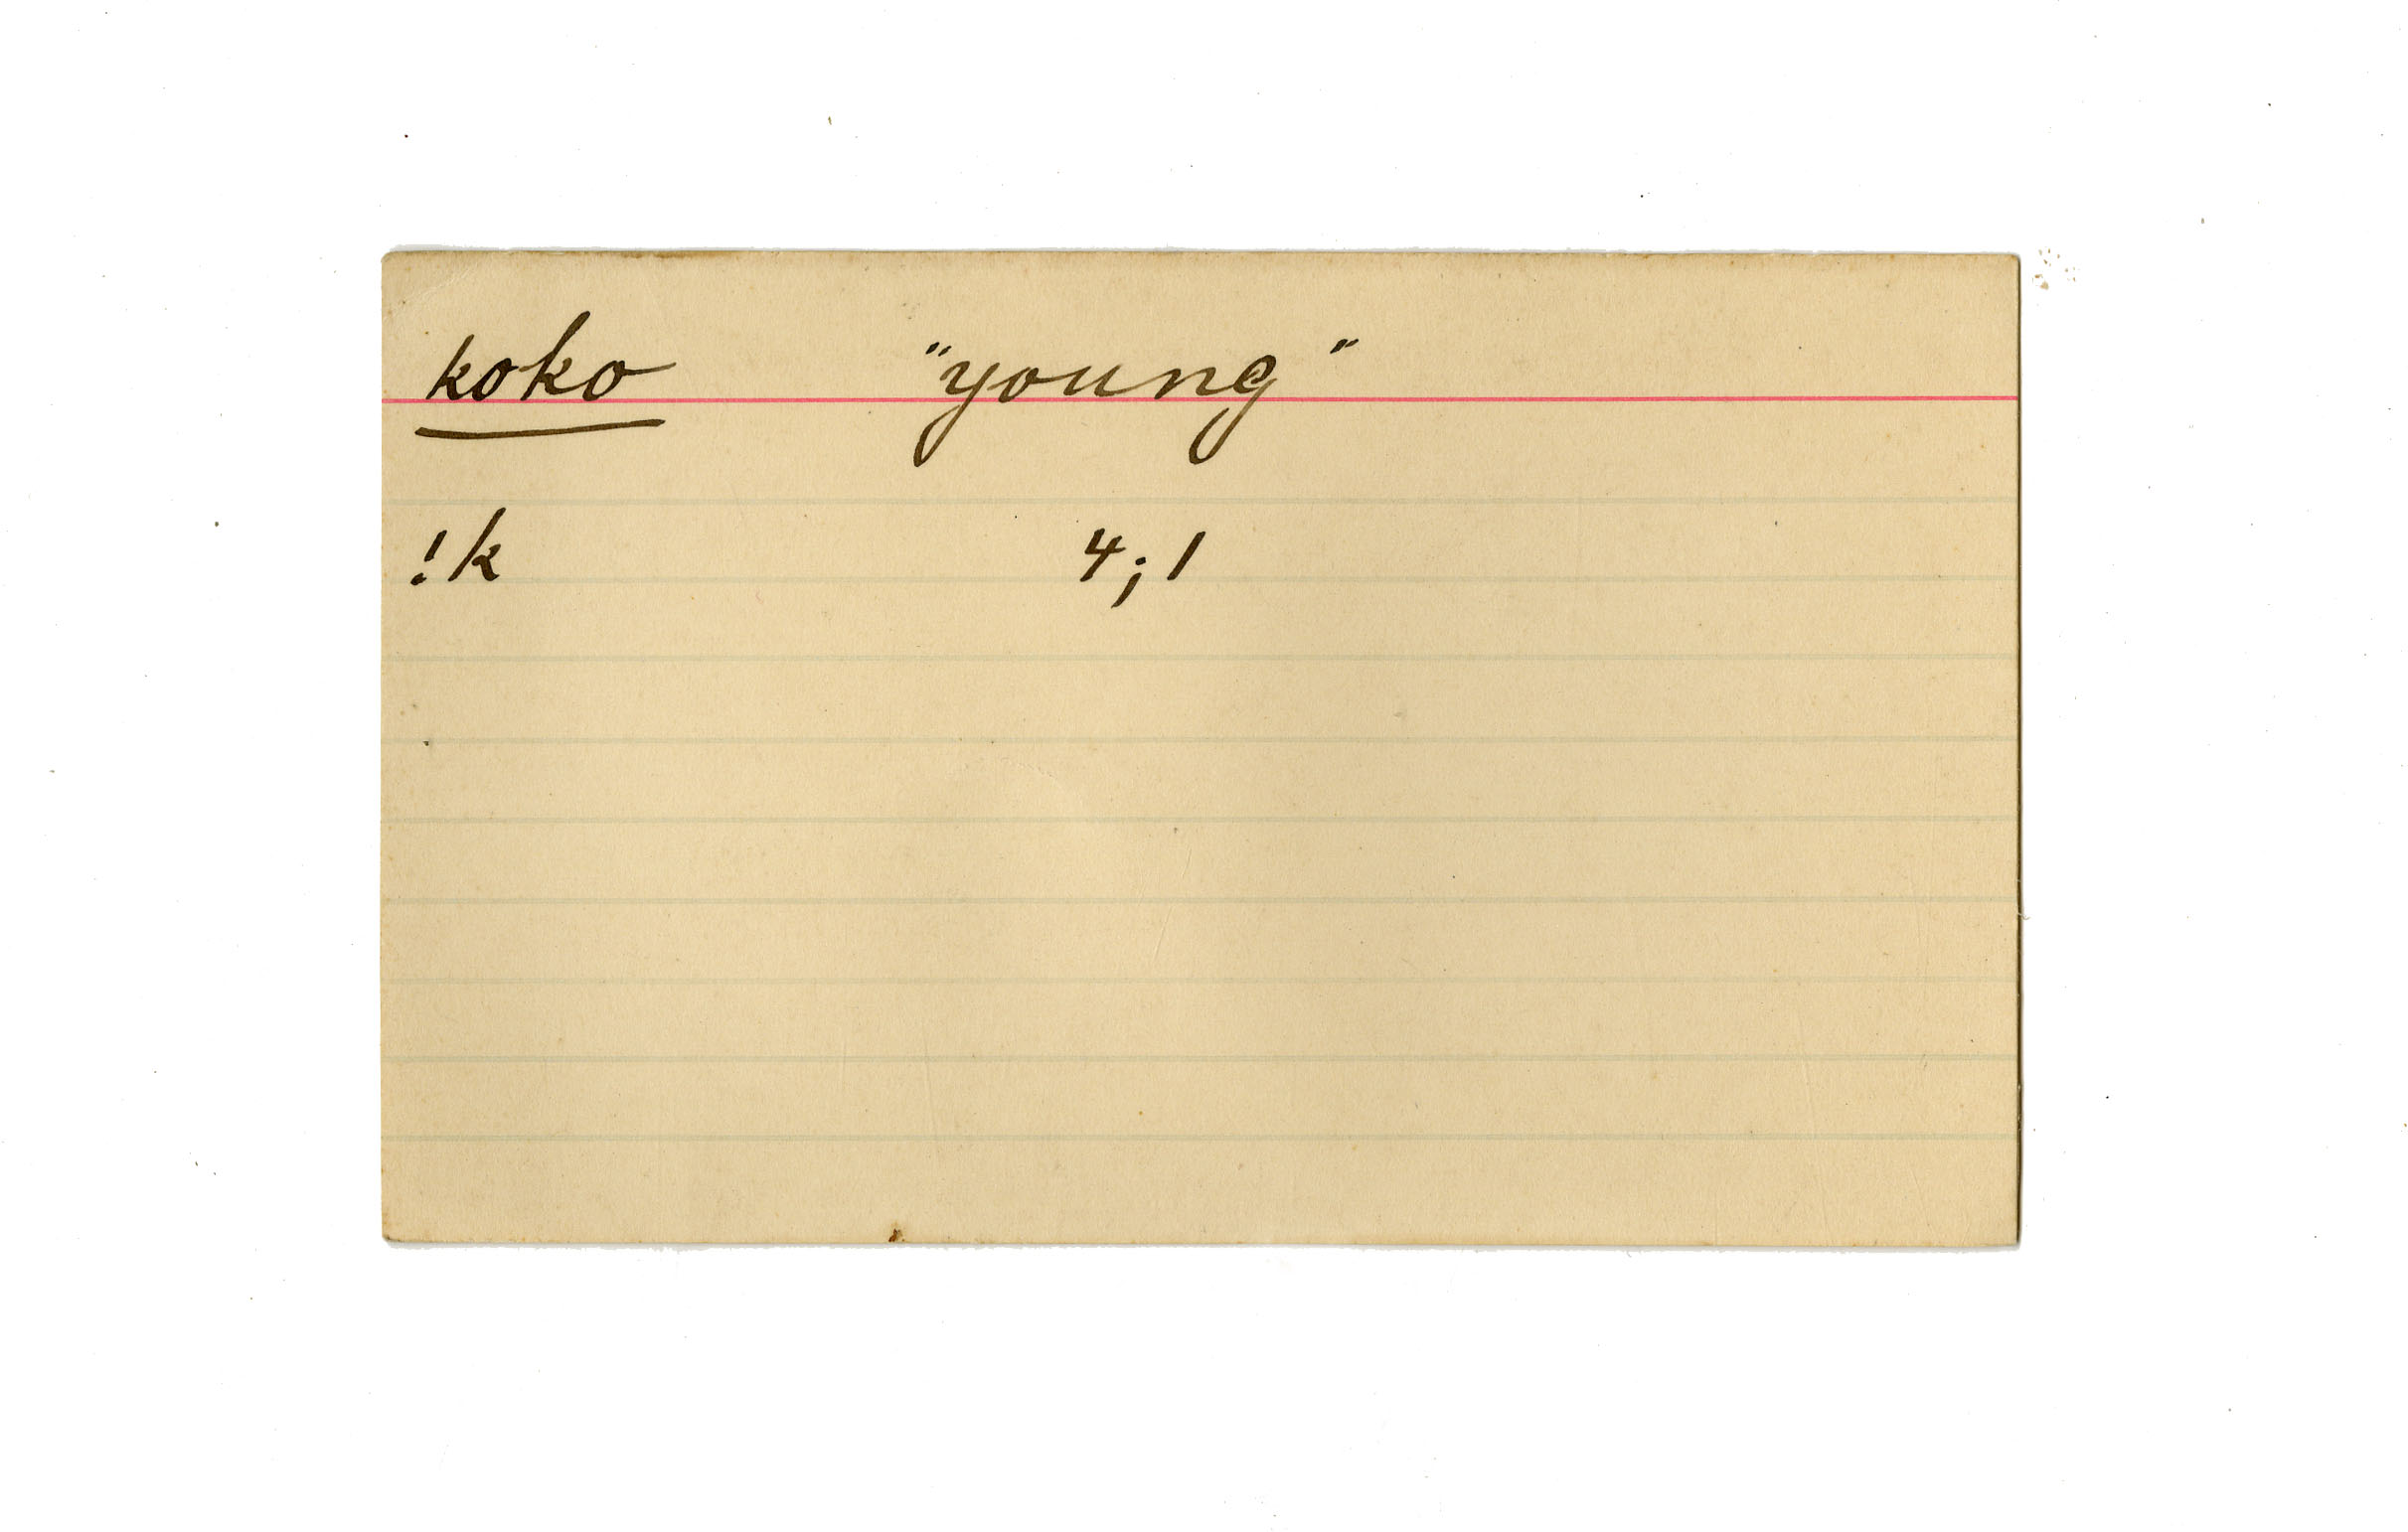 koko "young"
!k 4;1